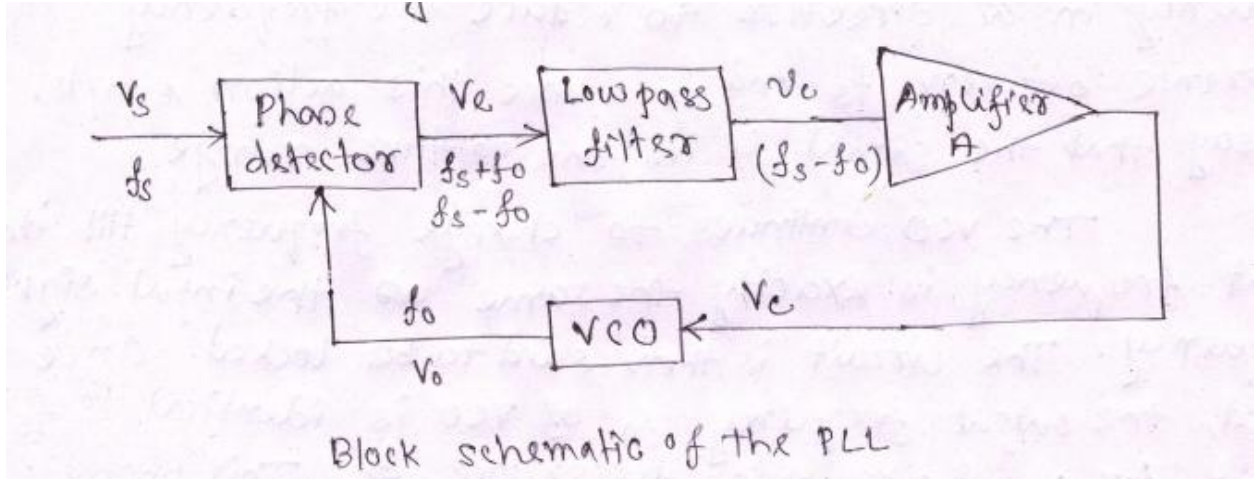 Vs
fs
Phase
detector
Ve
fs+fo
fs-fo
Low pass
filter
vc
(fs-fo)
Amplifier
A
fo
Vo
VCO
Vc
Block schematic of the PLL